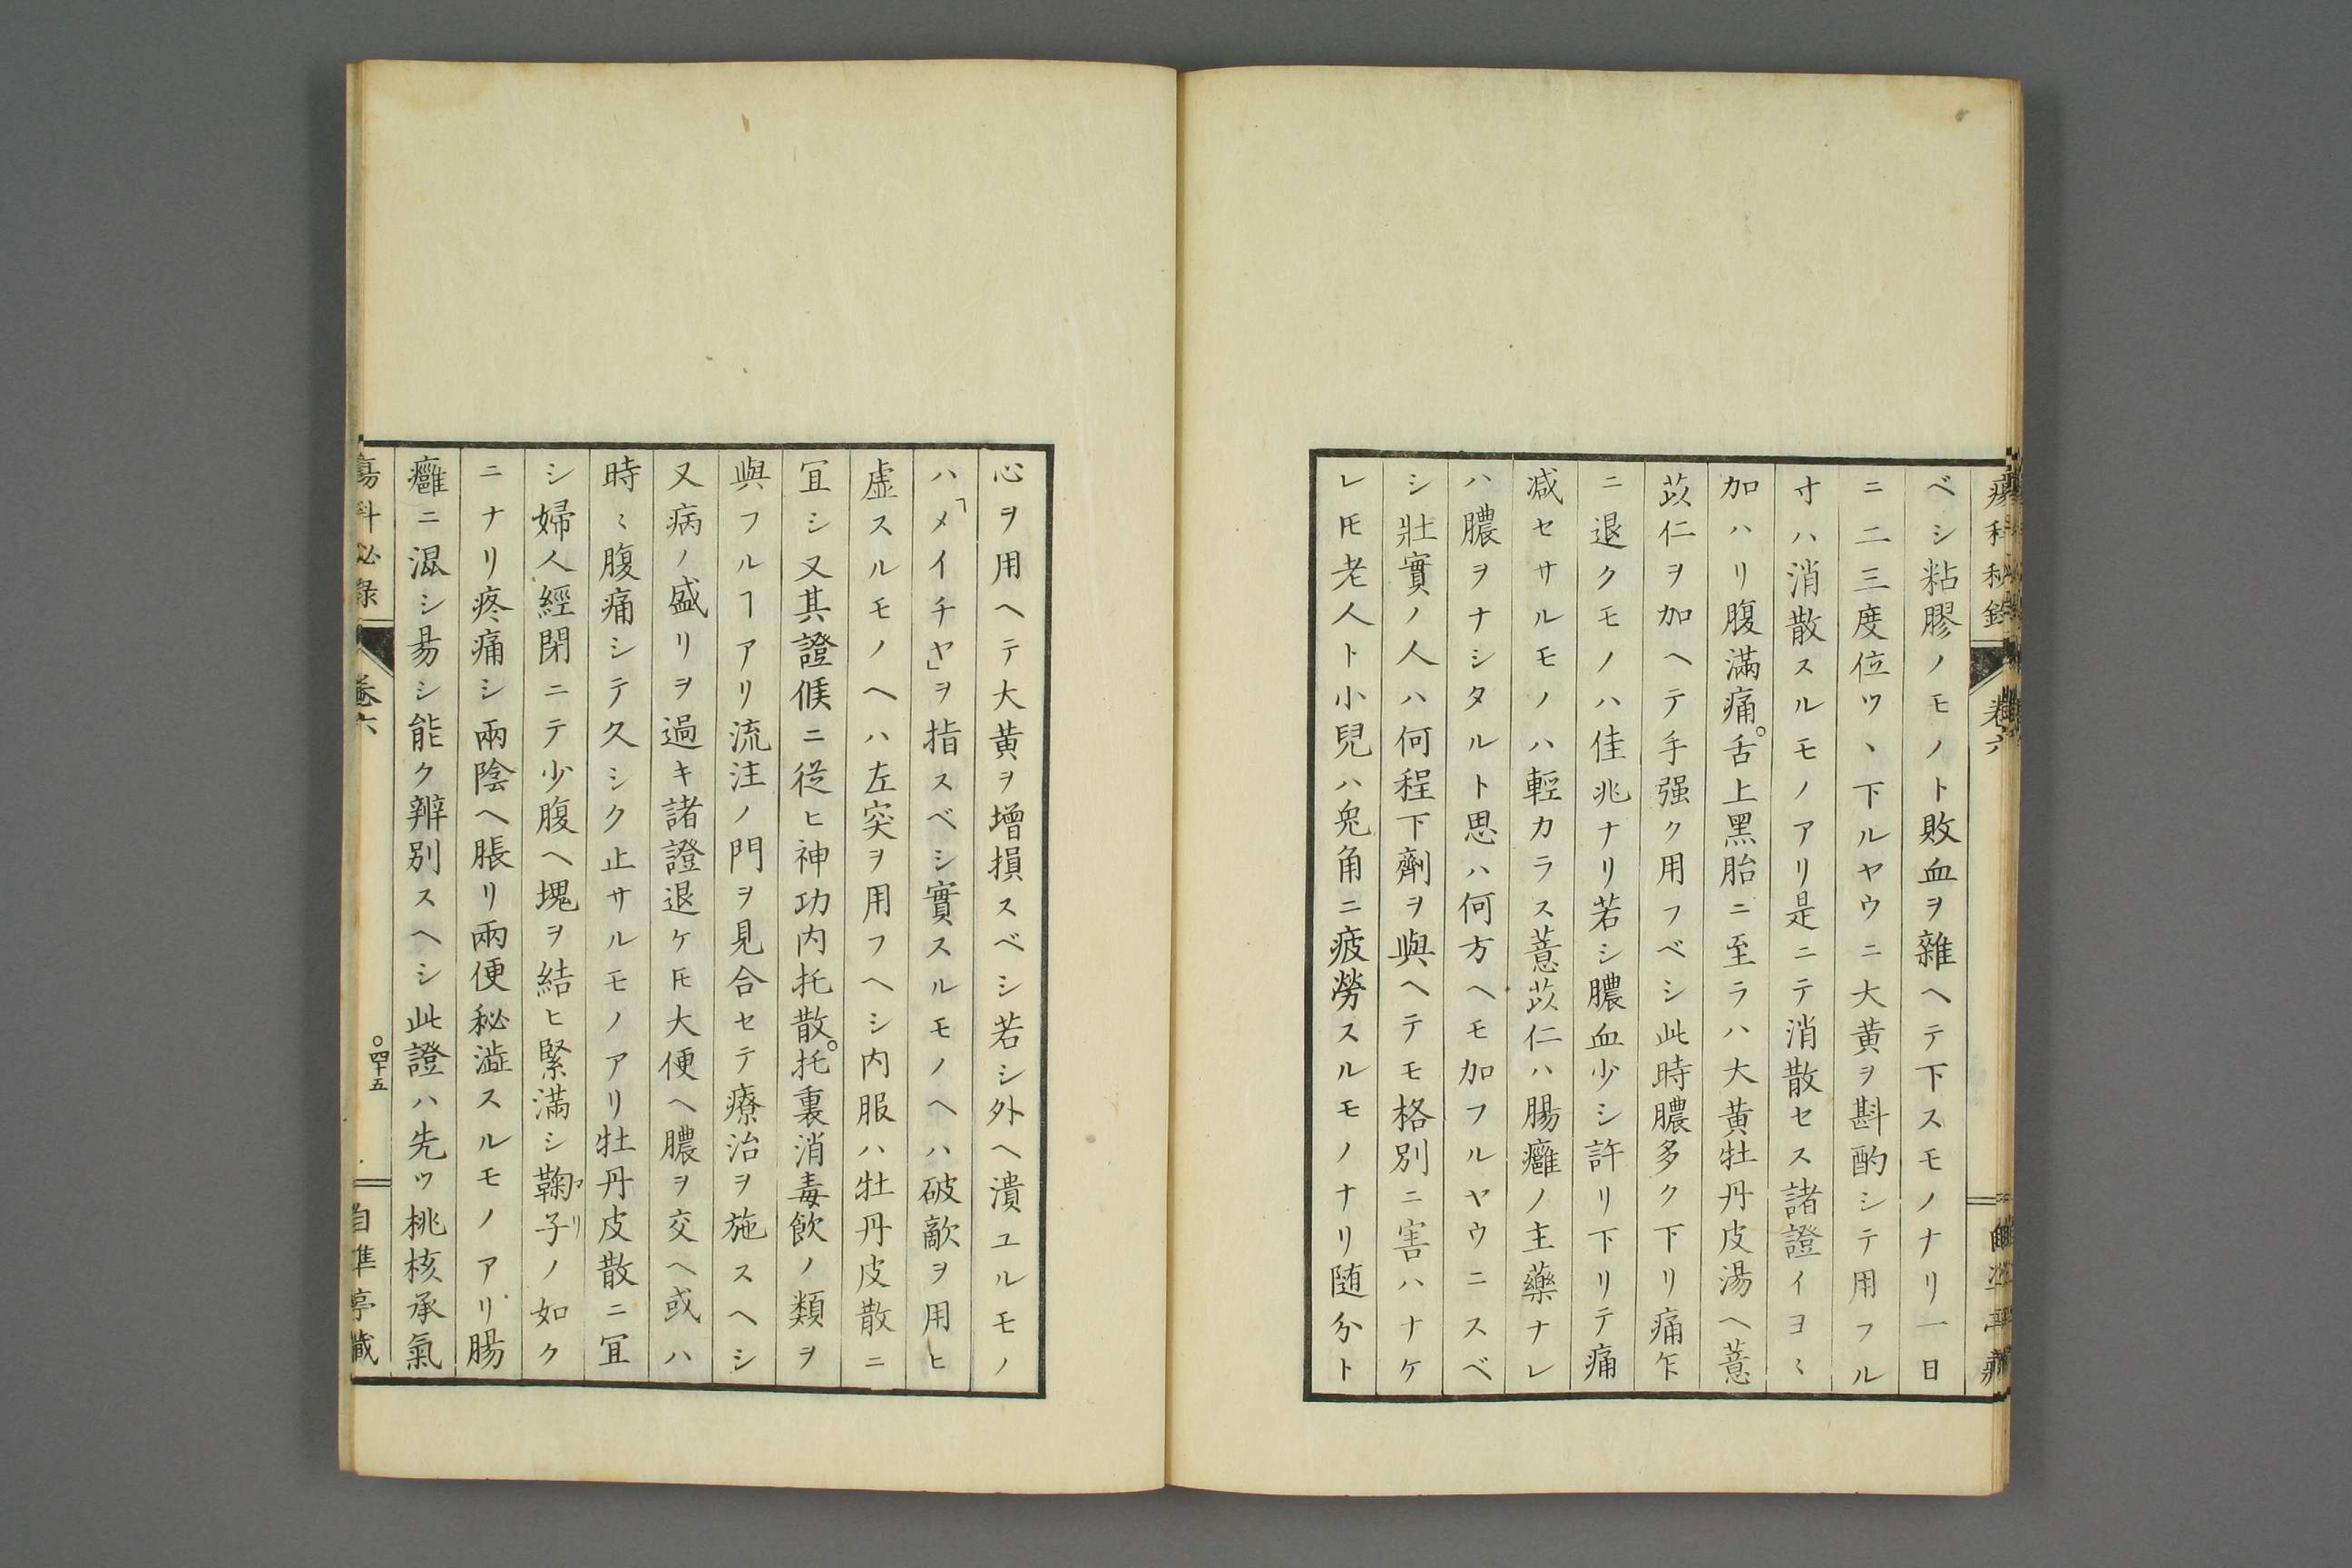 ベシ粘膠ノモノト敗血ヲ雜ヘテ下スモノナリ一日
ニ二三度位ツヽ下ルヤウニ大黄ヲ斟酌シテ用フル
寸ハ消散スルモノアリ是ニテ消散セス諸證イヨ〻
加ハリ腹滿痛。舌上黑胎ニ至ラハ大黄牡丹皮湯ヘ薏
苡仁ヲ加ヘテ手强ク用フベシ此時膿多ク下リ痛乍
ニ退クモノハ佳兆ナリ若シ膿血少シ許リ下リテ痛
减セサルモノハ輕カラス薏苡仁ハ腸癰ノ主藥ナレ
ハ膿ヲナシタルト思ハ何方ヘモ加フルヤウニスベ
シ壯實ノ人ハ何程下劑ヲ與ヘテモ格別ニ害ハナケ
レ𪜈老人ト小兒ハ兔角ニ疲勞スルモノナリ随分ト
心ヲ用ヘテ大黄ヲ增損スベシ若シ外ヘ潰ユルモノ
ハ「メイチヤ」ヲ指スベシ實スルモノヘハ破敵ヲ用ヒ
虛スルモノヘハ左突ヲ用フヘシ内服ハ牡丹皮散ニ
冝シ又其證候ニ從ヒ神功内托散。托裏消毒飮ノ類ヲ
與フルヿアリ流注ノ門ヲ見合セテ療治ヲ施スヘシ
又病ノ盛リヲ過キ諸證退ケ𪜈大便ヘ膿ヲ交ヘ或ハ
時〻腹痛シテ久シク止サルモノアリ牡丹皮散ニ冝
シ婦人經閉ニテ少腹ヘ塊ヲ結ヒ緊滿シ鞠子ノ如ク
マリ
ニナリ疼痛シ兩陰ヘ脹リ兩便秘澁スルモノアリ腸
癰ニ混シ易シ能ク辨別スヘシ此證ハ先ツ桃核承氣
瘍科秘錄
卷六
四十五
自準亭藏